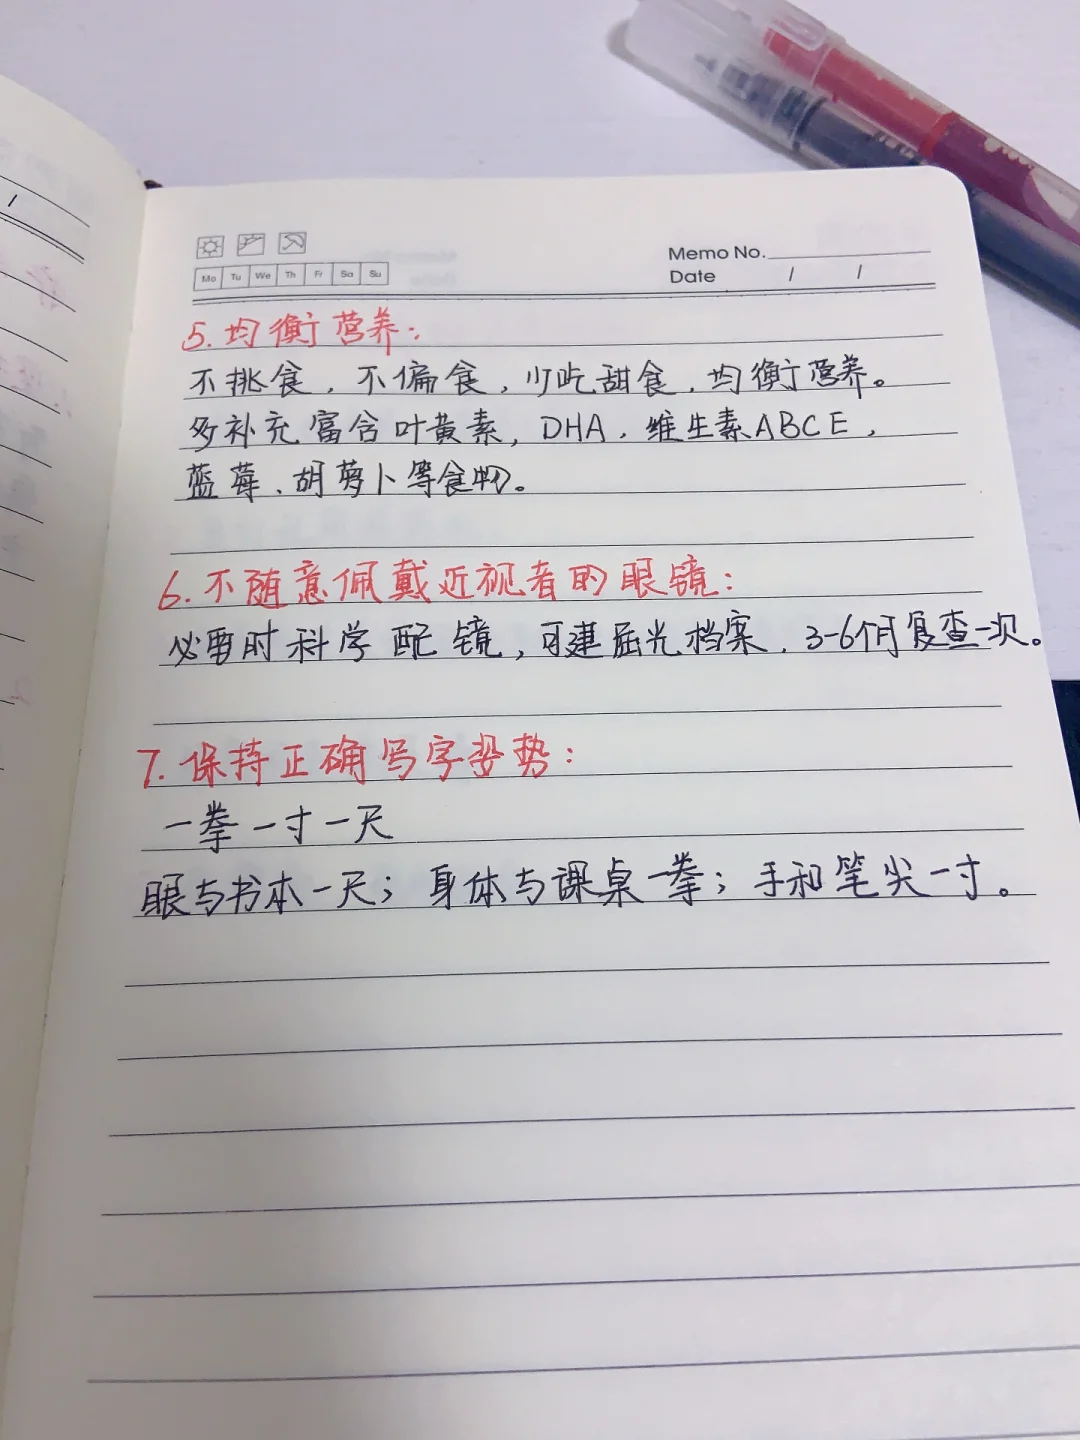 Mo Tu We Th Fr Sa Su
Memo No.
Date / /
5.均衡营养:
不挑食,不偏食,少吃甜食,均衡营养。
多补充富含叶黄素,DHA,维生素ABCE,
蓝莓、胡萝卜等食物。
6.不随意佩戴近视者的眼镜:
必要时科学配镜,可建屈光档案,3-6个月复查一次。
7.保持正确写字姿势:
一拳一寸一尺
眼与书本一尺;身体与课桌一拳;手和笔尖一寸。